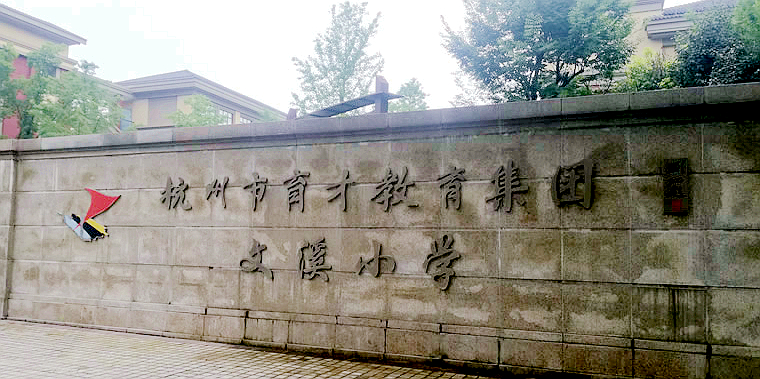 杭州市育才教育集团
文溪小学